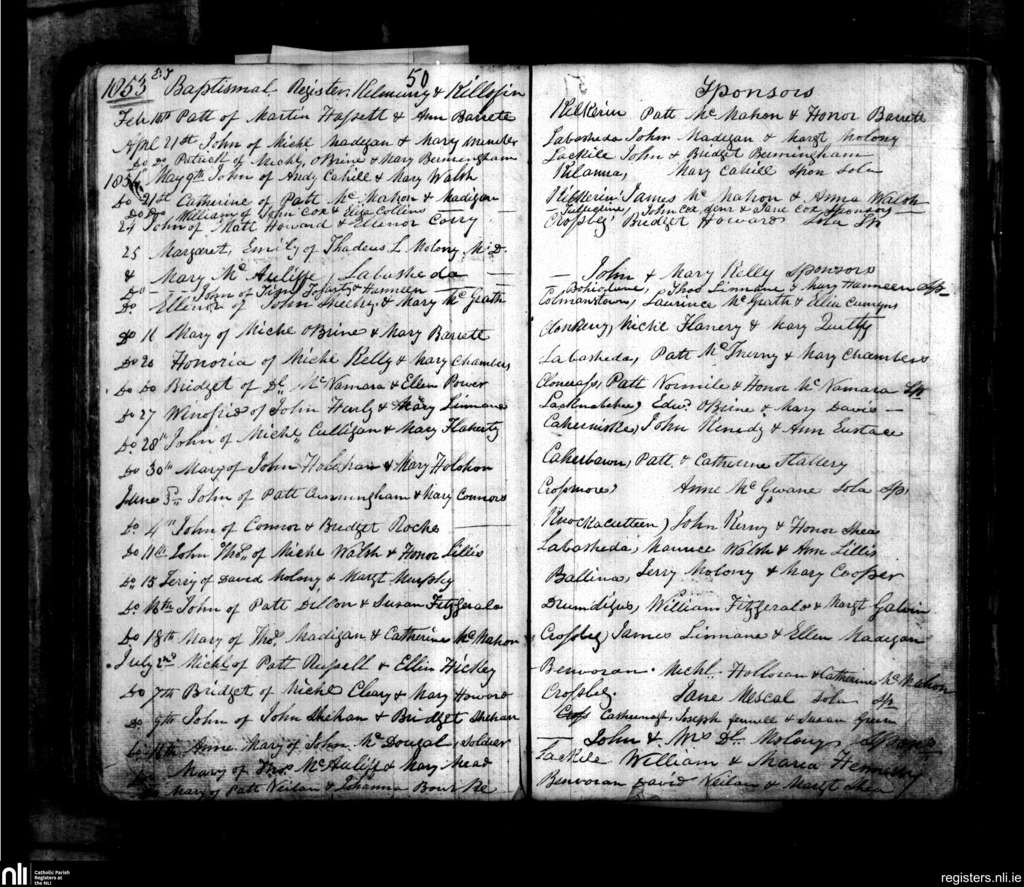 1853 Baptismal Register, Kilmurry & Killofin
50
Feb 18th Patt of Martin Hassett & Ann Barrett
April 21st John of Michl Madigan & Mary
Do Do Patrick of Michl, OBrine & Mary Bermingham
May 9th John of Andy Cahill & Mary Walsh
Do 21st Catherine of Patt Mc Mahon & Madigan
Do Do William of John Cox & Eliza Collins
24 John of Matt Howard & Elenor Corry
25 Margaret, Emily of Thadeus L Molony, M.D.
& Mary Mc Auliffe, Labasheda
Do John of Timy Fogarty & Hanneen
Do Ellenor of John Sheehy & Mary Mc Grath
Do 11 Mary of Michl OBrine & Mary Barrett
Do 20 Honoria of Michl Kelly & Mary Chambers
Do Do Bridget of Dl Mc Namara & Ellen Power
Do 27 Winefrid of John Hanly & Mary Linnane
Do 28th John of Michl Culligan & Mary Flaherty
Do 30th Mary of John Holohan & Mary Holohon
June 3rd John of Patt Cunningham & Mary Connors
Do 4th John of Connor & Bridget Roche
Do 11th John Thos of Michl Walsh & Honor Lillis
Do 15 Jerry of David Molony & Margt Murphy
Do 16th John of Patt Dillon & Susan Fitzgerald
Do 18th Mary of Thos Madigan & Catherine McMahon
July 2nd Michl of Patt Russell & Ellen Hickey
Do 7th Bridget of Michl Cleary & Mary Howard
Do 9th John of John Shehan & Bridget Shehan
Do 16th Anne Mary of John Mc Dougal, Soldier
Mary of Thos McAuliff & Mary Mead
Mary of Patt Neilan & Johanna Bourke
Sponsors
Kilkerin Patt Mc Mahon & Honor Barrett
Labasheda John Madigan & Margt Molony
Lackile John & Bridget Bermingham
Kilanna, Mary Cahill Spon Sola
Kilkerin James Mc Mahon & Anna Walsh
John Cox Senr & Jane Cox Sponsors
Crossbeg Bridget Howard Sola Sp
John & Mary Kelly Sponsors
Thos Linnane & Mary Hanneen Sp
Colmanstown, Laurence McGrath & Ellen
Clonkery, Michl Flanery & Mary
Labasheda, Patt McInerny & Mary Chambers
Patt Normile & Honor Mc Namara Sp
Edwd OBrine & Mary Davis
John Kenedy & Ann Eustace
Caherbawn, Patt & Catherine Slattery
Crossmore, Anne Mc Gwane Sola Sp
John Kerny & Honor Shea
Labasheda, Maurice Walsh & Ann Lillis
Ballina, Jerry Molony & Mary Cooper
Drumdigus, William Fitzgerald & Margt Galvin
Crossbeg, James Linnane & Ellen Madigan
Benvoran. Michl Holloran & Catherine McMahon
Crossbeg. Jane Mescal Sola Sp
Joseph Fennell & Susan Green
John & Mrs Dl Molony, Sponrs
Lackile William & Maria
Benvoran David Neilan & Margt Shea
nli
Catholic Parish
Registers at
the NLI
registers.nli.ie